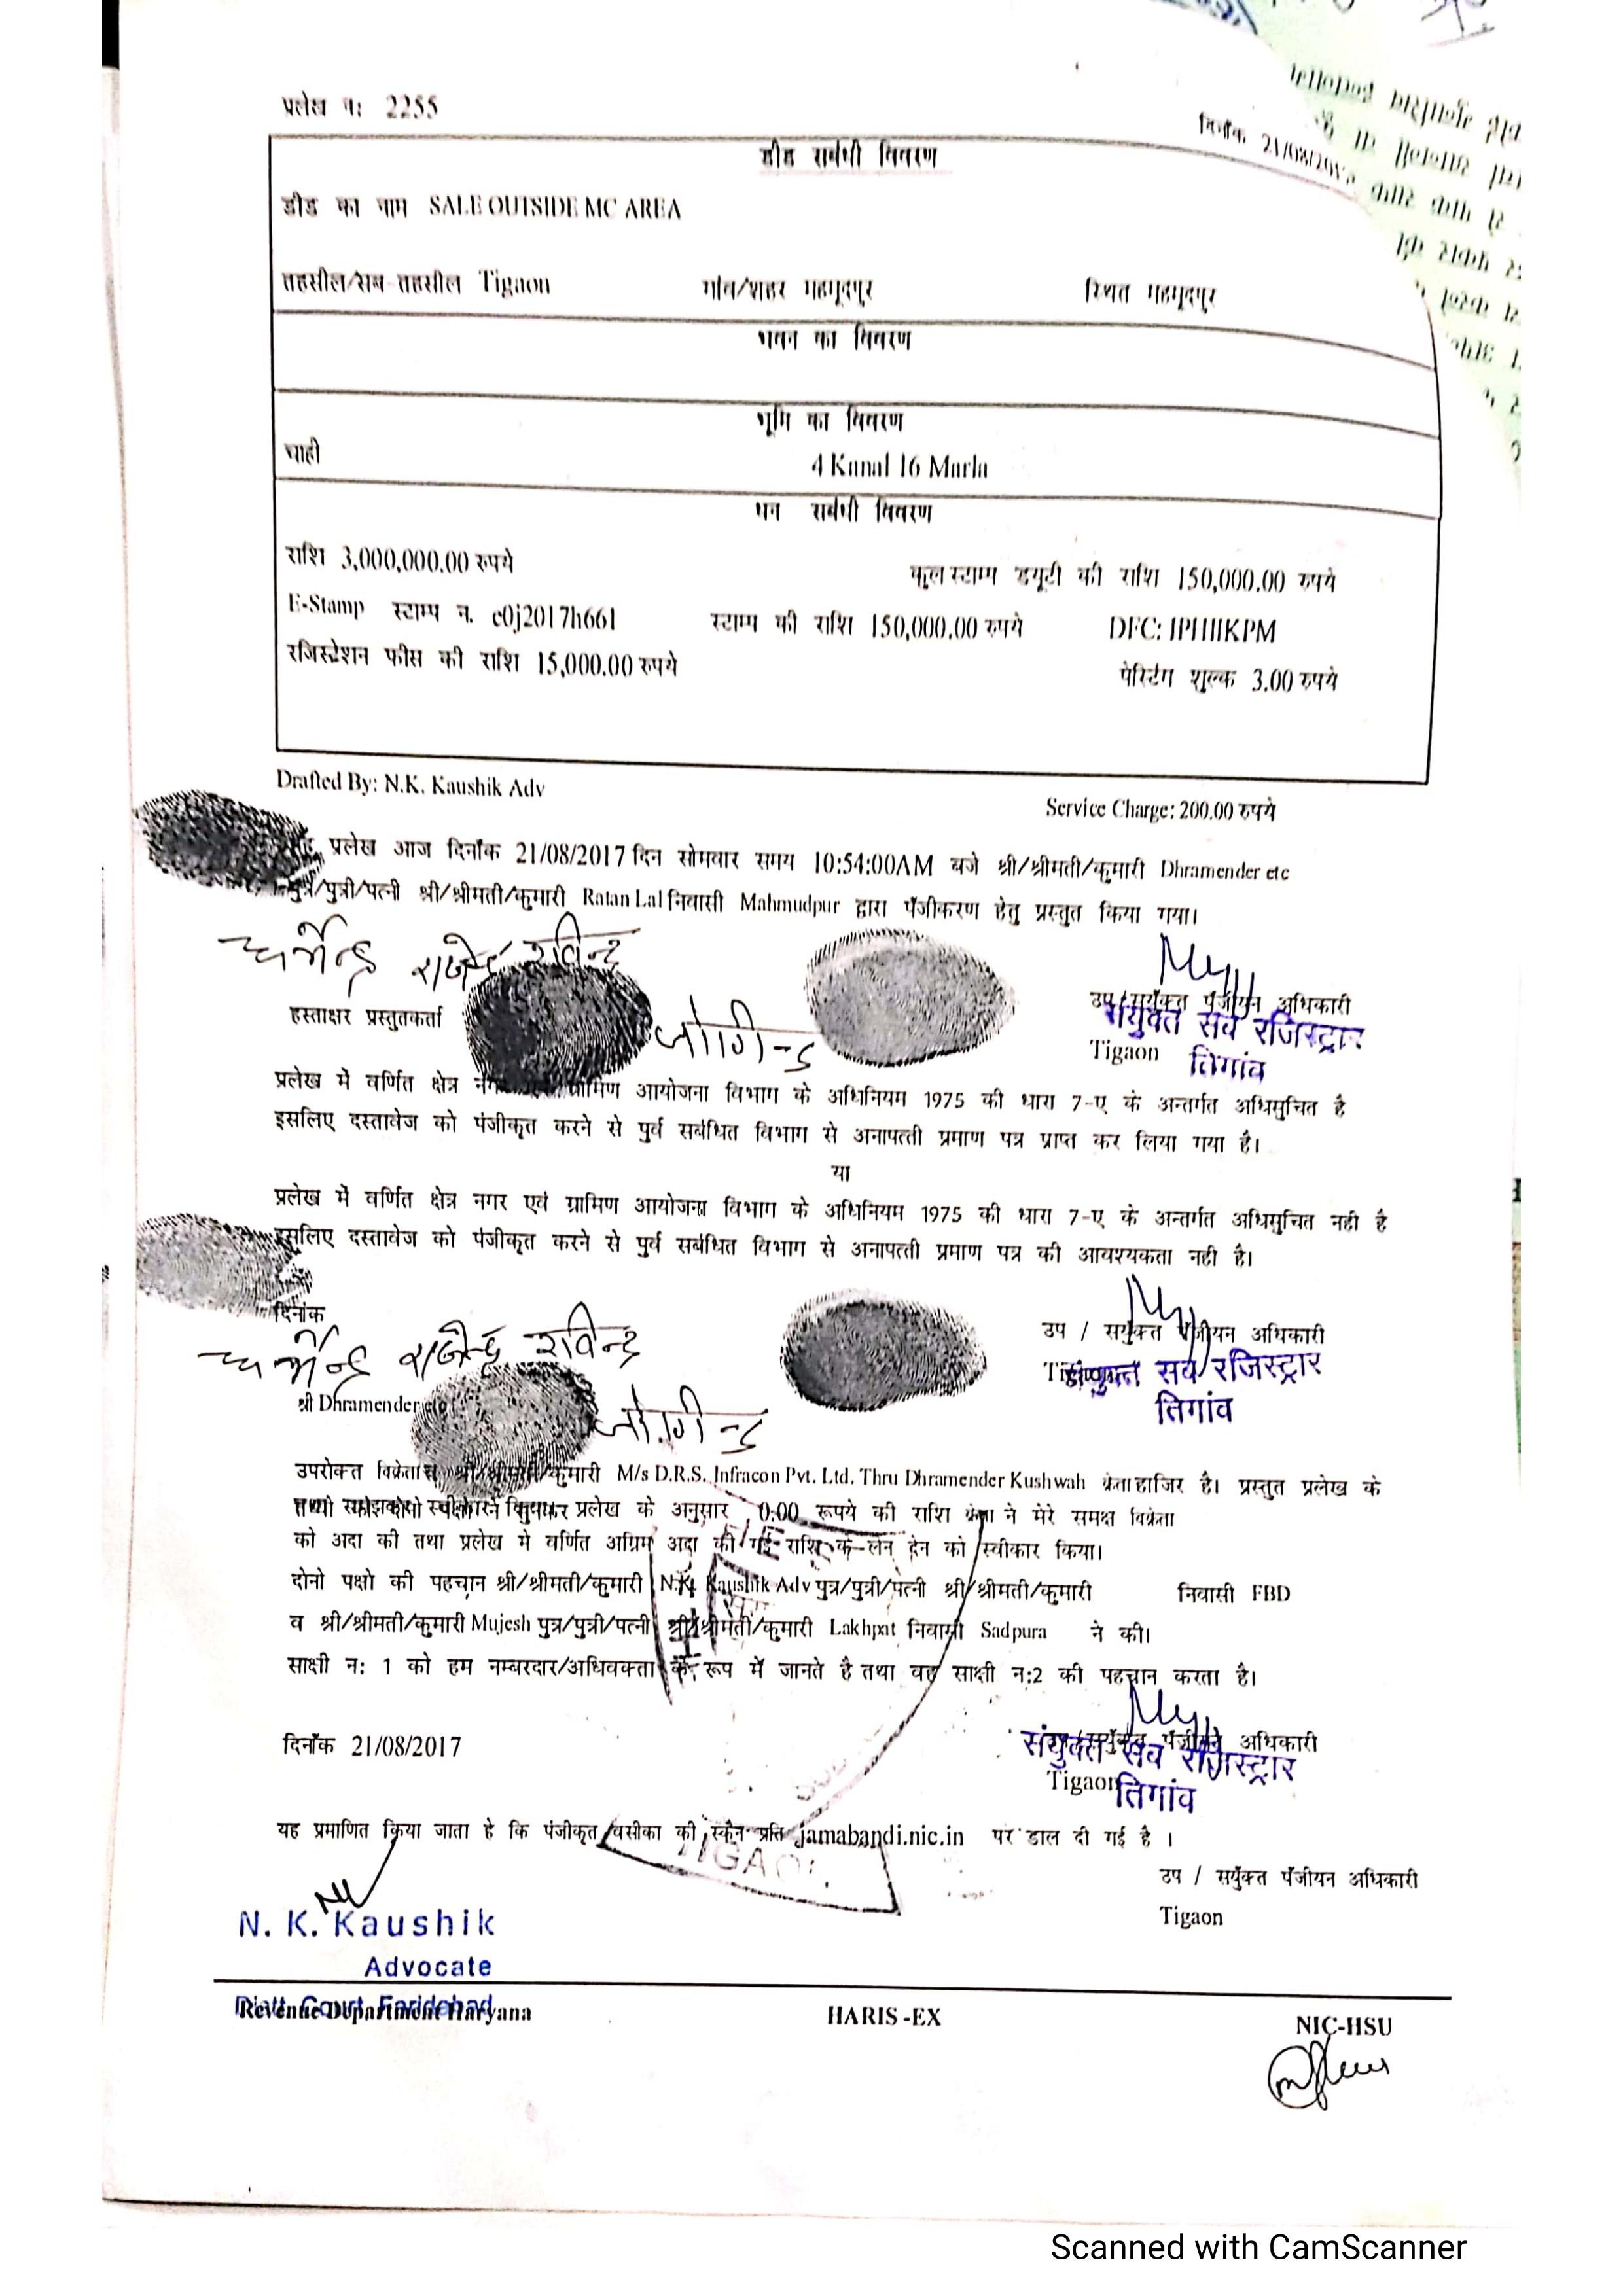 प्रलेख नः 2255
दिनाँक 21/08/20
डीड सबंधी विवरण
डीड का नाम SALE OUTSIDE MC AREA
तहसील/सब-तहसील Tigaon गांव/शहर महमूदपुर स्थित महमूदपुर
भवन का विवरण
भूमि का विवरण
चाही 4 Kanal 16 Marla
धन सबंधी विवरण
राशि 3,000,000.00 रुपये कुल स्टाम्प डयूटी की राशि 150,000.00 रुपये
E-Stamp स्टाम्प न. e0j2017h661 स्टाम्प की राशि 150,000.00 रुपये DFC: IPHIIKPM
रजिस्टेशन फीस की राशि 15,000.00 रुपये पेस्टिंग शुल्क 3.00 रुपये
Drafted By: N.K. Kaushik Adv Service Charge: 200.00 रुपये
प्रलेख आज दिनाँक 21/08/2017 दिन सोमवार समय 10:54:00AM बजे श्री/श्रीमती/कुमारी Dhramender etc
पुत्र/पुत्री/पत्नी श्री/श्रीमती/कुमारी Ratan Lal निवासी Mahmudpur द्वारा पँजीकरण हेतु प्रस्तुत किया गया।
धर्मेन्द्र राजेन्द्र रविन्द्र
उप/सयुँक्त पँजीयन अधिकारी
हस्ताक्षर प्रस्तुतकर्ता जोगिन्द्र
संयुक्त सब रजिस्ट्रार
Tigaon तिगांव
प्रलेख में वर्णित क्षेत्र ग्रामिण आयोजना विभाग के अधिनियम 1975 की धारा 7-ए के अन्तर्गत अधिमुचित है
इसलिए दस्तावेज को पंजीकृत करने से पुर्व सबंधित विभाग से अनापत्ती प्रमाण पत्र प्राप्त कर लिया गया है।
या
प्रलेख में वर्णित क्षेत्र नगर एवं ग्रामिण आयोजना विभाग के अधिनियम 1975 की धारा 7-ए के अन्तर्गत अधिमुचित नही है
इसलिए दस्तावेज को पंजीकृत करने से पुर्व सबंधित विभाग से अनापत्ती प्रमाण पत्र की आवश्यकता नही है।
दिनांक
उप / सयुँक्त पँजीयन अधिकारी
धर्मेन्द्र राजेन्द्र रविन्द्र
Tigaon संयुक्त सब रजिस्ट्रार
तिगांव
श्री Dhramender etc जोगिन्द्र
उपरोक्त विक्रेता श्री/श्रीमती/कुमारी M/s D.R.S. Infracon Pvt. Ltd. Thru Dhramender Kushwah क्रेता हाजिर है। प्रस्तुत प्रलेख के
तथ्यो को दोनो पक्षो ने सुनकर प्रलेख के अनुसार 0.00 रूपये की राशि क्रेता ने मेरे समक्ष विक्रेता
को अदा की तथा प्रलेख मे वर्णित अग्रिम अदा की गई राशि के लेन देन को स्वीकार किया।
दोनो पक्षो की पहचान श्री/श्रीमती/कुमारी N.K. Kaushik Adv पुत्र/पुत्री/पत्नी श्री/श्रीमती/कुमारी निवासी FBD
व श्री/श्रीमती/कुमारी Mujesh पुत्र/पुत्री/पत्नी श्री/श्रीमती/कुमारी Lakhpat निवासी Sadpura ने की।
साक्षी न: 1 को हम नम्बरदार/अधिवक्ता के रूप में जानते है तथा वह साक्षी न:2 की पहचान करता है।
दिनाँक 21/08/2017 उप/सयुँक्त पँजीयन अधिकारी
संयुक्त सब रजिस्ट्रार
Tigaon तिगांव
यह प्रमाणित किया जाता हे कि पंजीकृत वसीका की स्कैन प्रति jamabandi.nic.in पर डाल दी गई है ।
TIGAON
उप / सयुँक्त पँजीयन अधिकारी
Tigaon
N. K. Kaushik
Advocate
Distt. Court, Faridabad
Revenue Department Haryana HARIS-EX NIC-HSU
Scanned with CamScanner